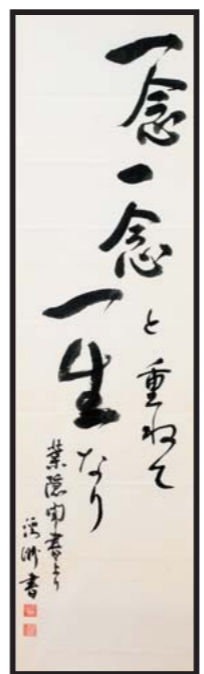 一念一念と重ねて
一生なり
葉隠聞書より
書